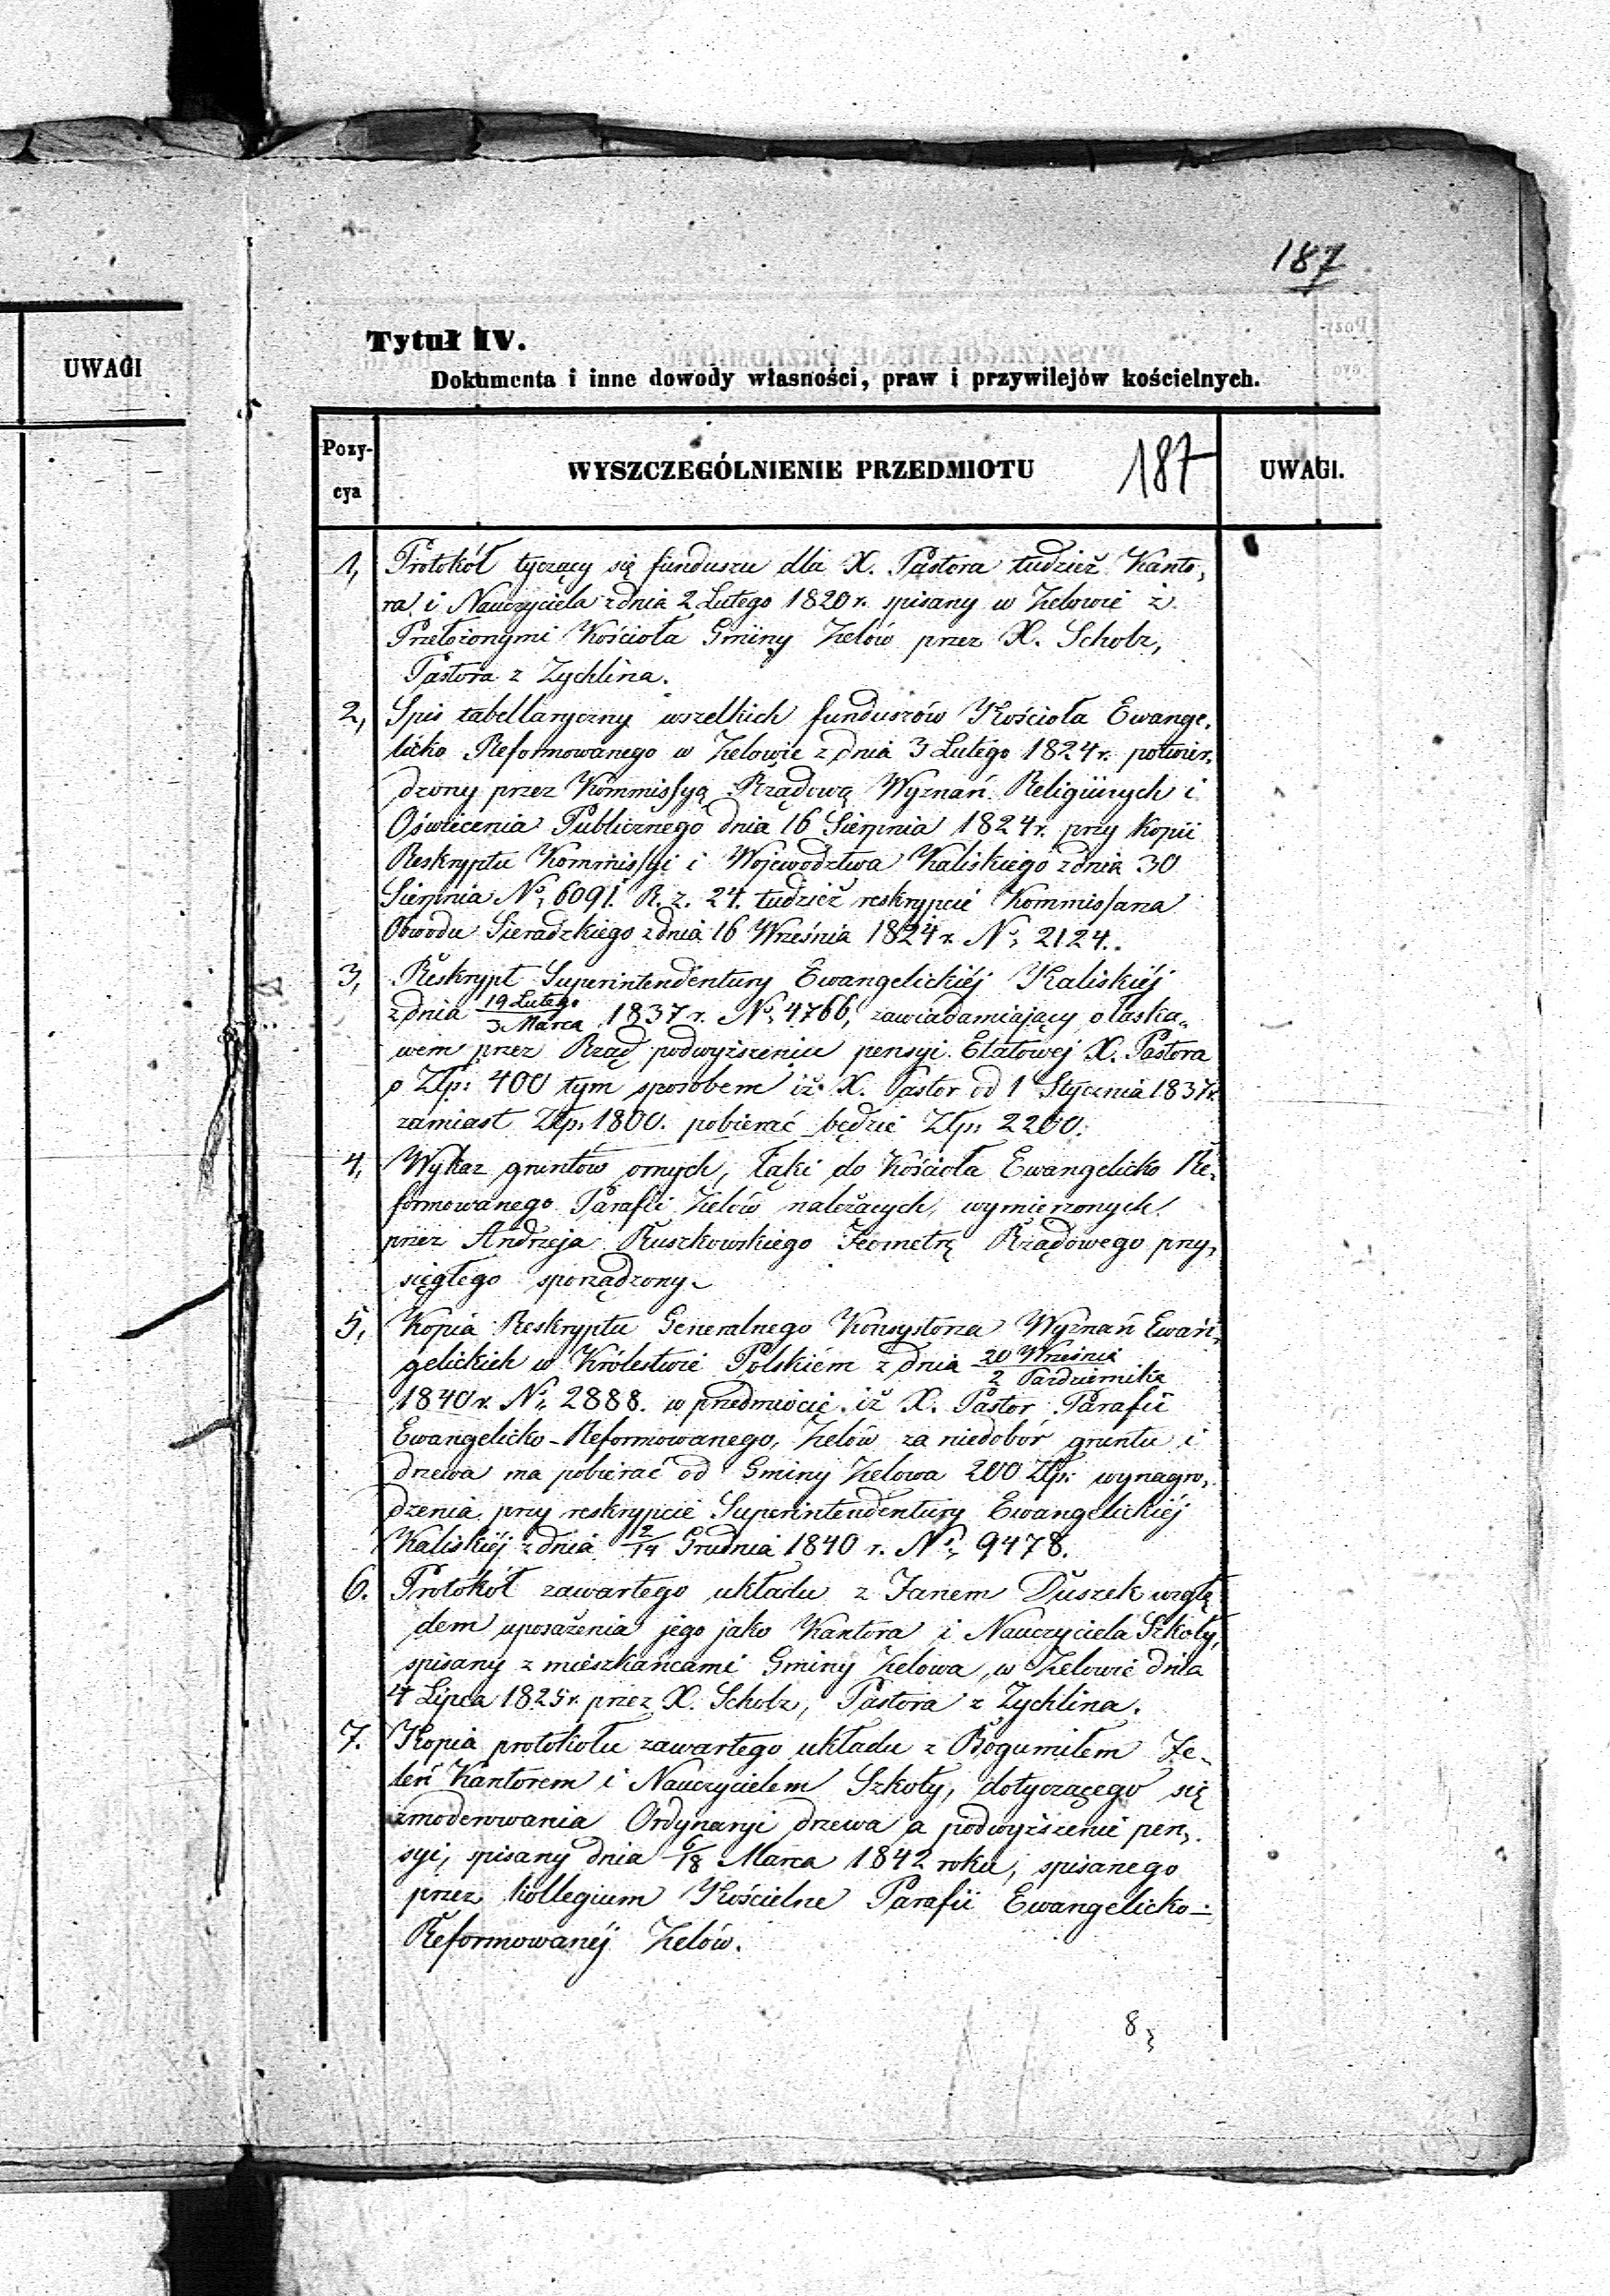 187
UWAGI
Tytuł IV.
Dokumenta i inne dowody własności, praw i przywilejów kościelnych.
Pozy-
cya
WYSZCZEGÓLNIENIE PRZEDMIOTU
187
UWAGI.
1, Protokół tyczący się funduszu dla X. Pastora tudzież Kanto,
ra i Nauczyciela z dnia 2 Lutego 1820 r. spisany w Zelowie z
Przełożonymi Kościoła Gminy Zelów przez X. Scholz,
Pastora z Zychlina.
2, Spis tabellaryczny wszelkich funduszów Kościoła Ewange,
licko Reformowanego w Zelowie z dnia 3 Lutego 1824 r. potwier,
dzony przez Kommissyą Rządową Wyznań Religijnych i
Oświecenia Publicznego dnia 16 Sierpnia 1824 r. przy kopii
Reskryptu Kommissyi i Województwa Kaliskiego z dnia 30
Sierpnia No, 6091. R. z. 24. tudzież reskrypcie Kommissarza
Obwodu Sieradzkiego z dnia 16 Września 1824 r. No, 2124.
3, Reskrypt Superintendentury Ewangelickiéj Kaliskiéj
z dnia 19 Lutego / 3 Marca 1837 r. No, 4766, zawiadamiający o łaska,,
wem przez Rząd podwyższeniu pensyi Etatowej X. Pastora
o Złp: 400 tym sposobem iż X. Pastor od 1 Stycznia 1837 r.
zamiast Złp. 1800. pobierać będzie Złp: 2200.
4, Wykaz gruntów ornych, łąki do Kościoła Ewangelicko Re,
formowanego Parafii Zelów należących, wymierzonych
przez Andrzeja Ruszkowskiego Jeometrę Rządowego przy,
sięgłego sporządzony.
5, Kopia Reskryptu Generalnego Konsystorza Wyznań Ewan,
gelickich w Królestwie Polskiém z dnia 20 Września / 2 Października
1840 r. No, 2888. w przedmiocie iż X. Pastor Parafii
Ewangelicko-Reformowanego, Zelów za niedobór gruntu i
drzewa ma pobierać od Gminy Zelowa 200 Złp: wynagro,
dzenia przy reskrypcie Superintendentury Ewangelickiéj
Kaliskiéj z dnia 2/14 Grudnia 1840 r. No, 9478.
6. Protokół zawartego układu z Janem Duszek wzglę
dem uposażenia jego jako Kantora i Nauczyciela Szkoły,
spisany z mieszkańcami Gminy Zelowa, w Zelowie dnia
4 Lipca 1825 r. przez X. Scholz, Pastora z Zychlina.
7. Kopia protokołu zawartego układu z Bogumiłem Je-
leń Kantorem i Nauczycielem Szkoły, dotyczącego się
zmoderowania Ordynaryi drzewa a podwyższenie pen,
syi, spisany dnia 6/18 Marca 1842 roku, spisanego
przez Kollegium Kościelne Parafii Ewangelicko-
Reformowanéj Zelów.
8